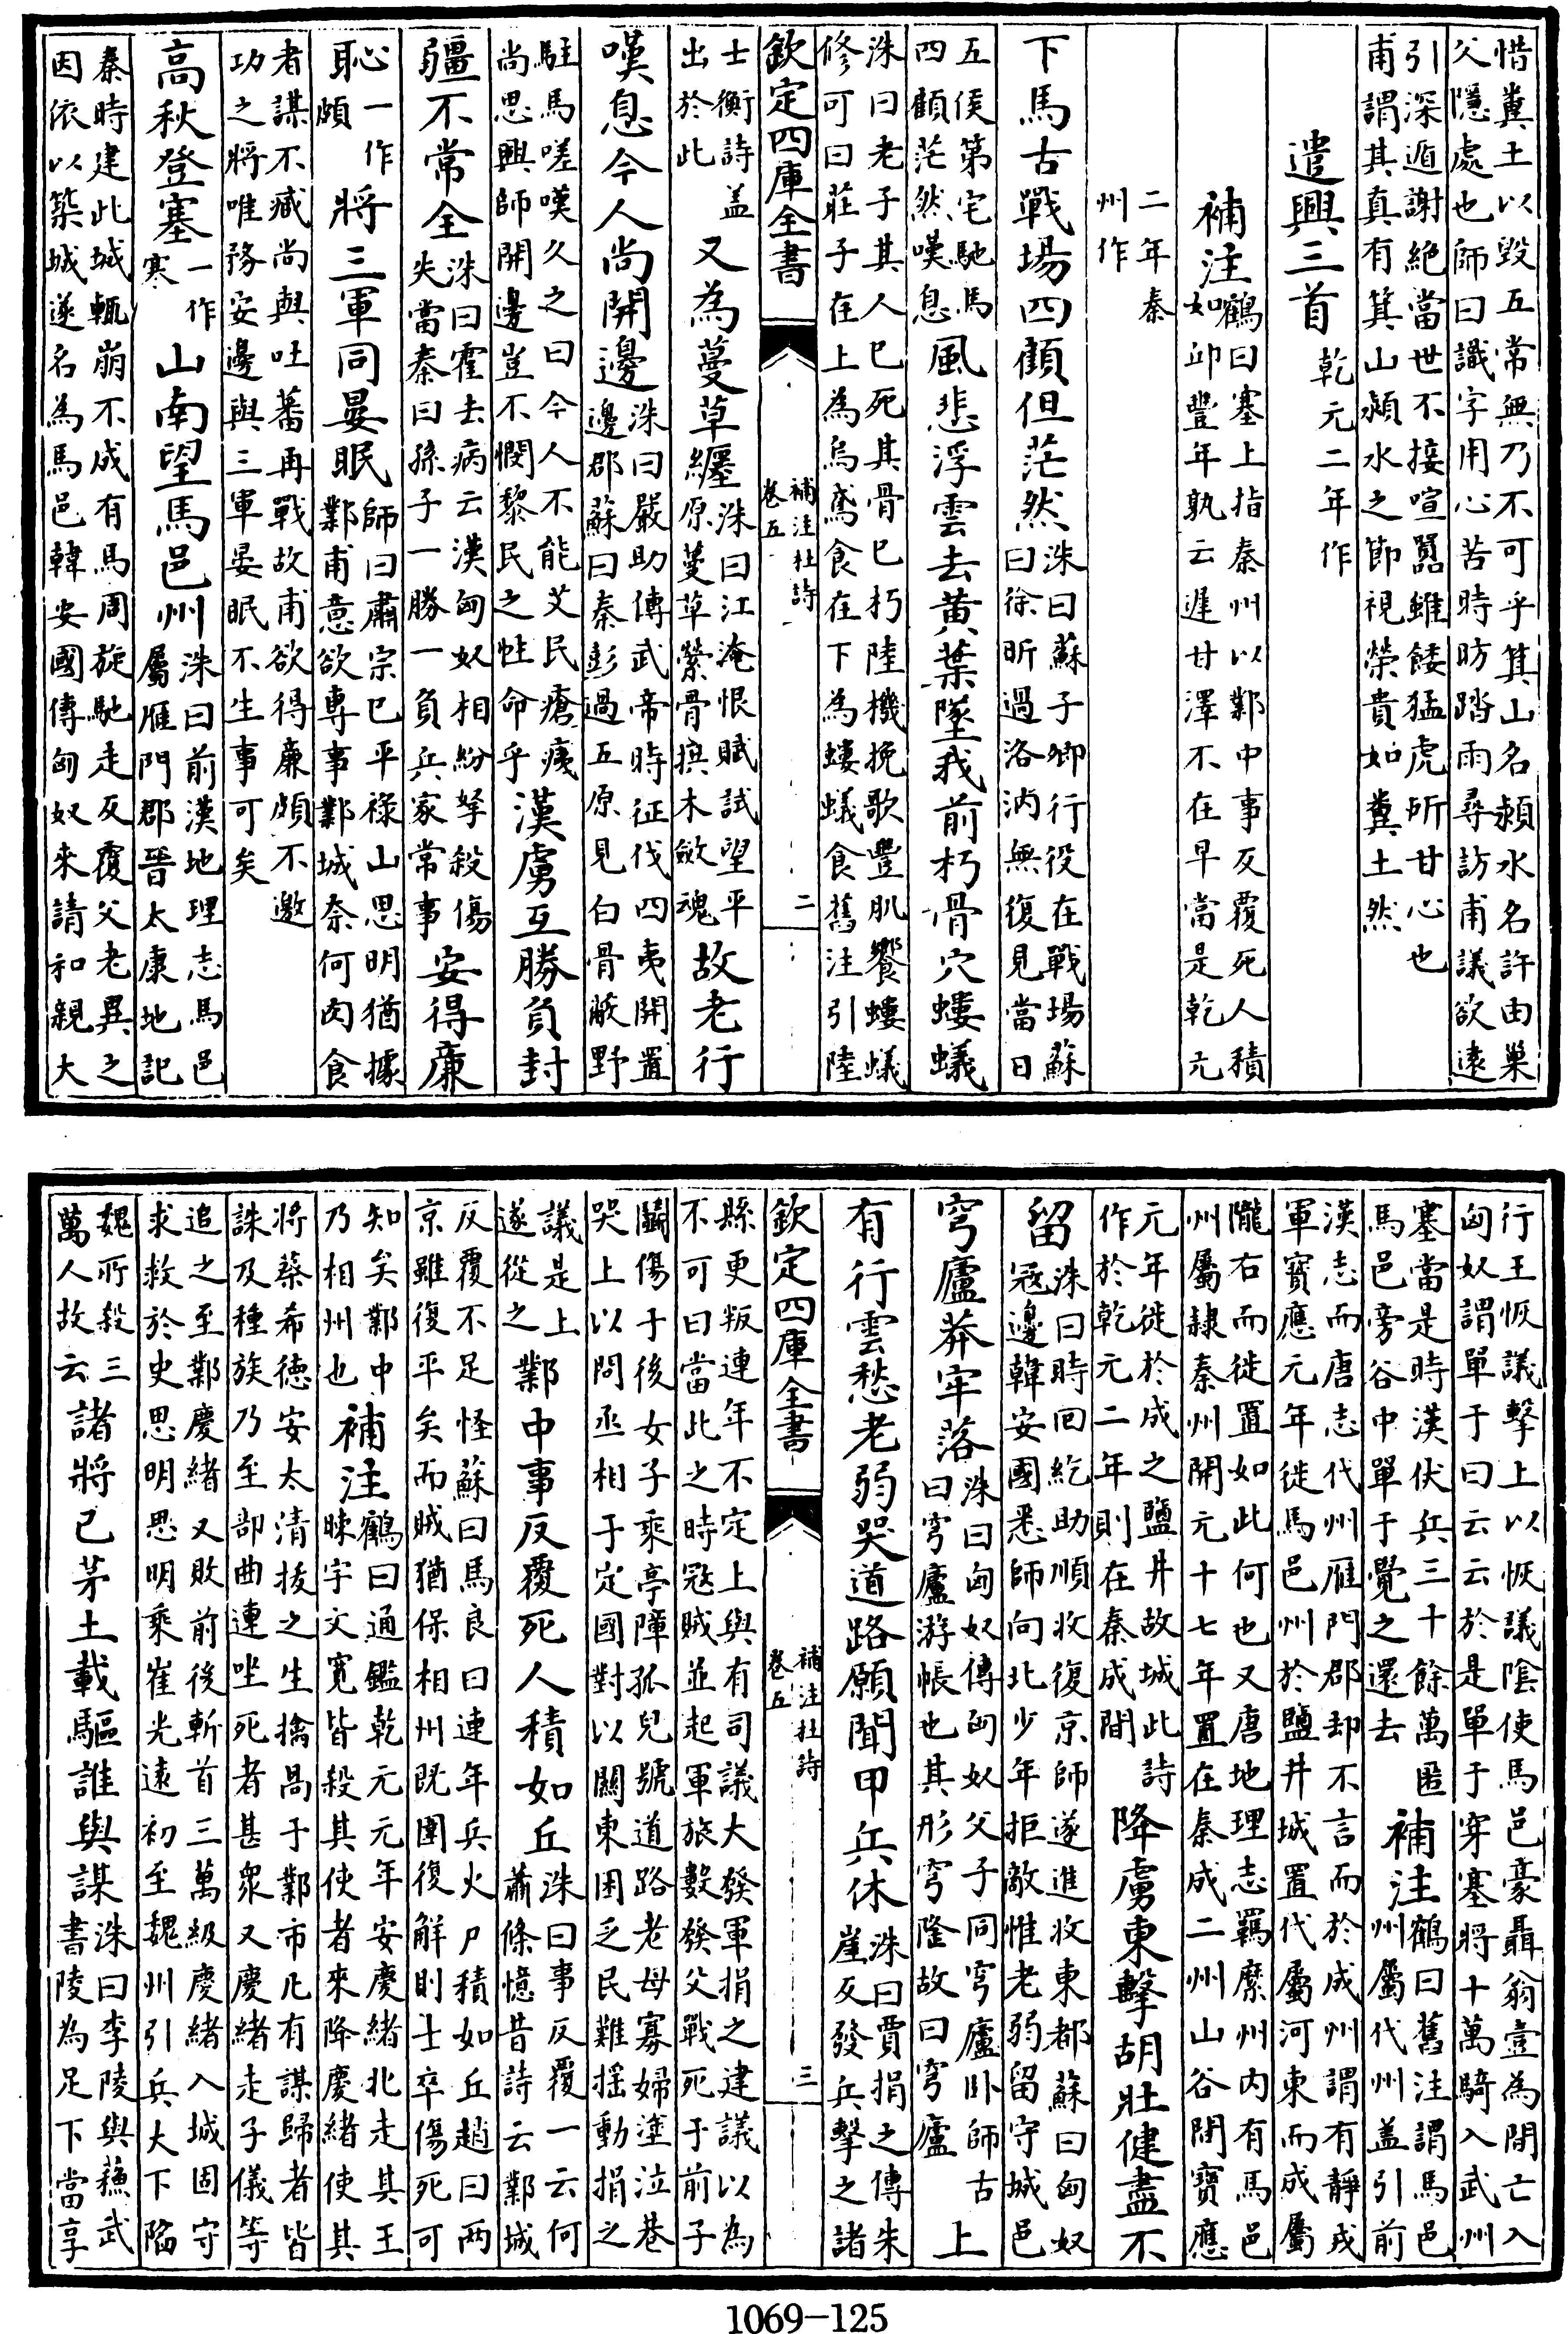 惜糞土以毀五常無乃不可乎箕山名潁水名許由巢
父隱處也師曰識字用心苦時昉踏雨尋訪甫議欲遠
引深遁謝絕當世不接喧囂雖餧猛虎所甘心也
甫謂其真有箕山潁水之節視榮貴如糞土然
遣興三首乾元二年作
補注鶴曰塞上指秦州以鄴中事反覆死人積
如丘豐年孰云遲甘澤不在早當是乾元
二年秦
州作
下馬古戰場四顧但茫然洙曰蘇子卿行役在戰場蘇
曰徐昕過洛汭無復見當日
五侯第宅馳馬
四顧茫然嘆息風悲浮雲去黃葉墜我前朽骨穴螻蟻
洙曰老子其人已死其骨已朽陸機挽歌豐肌饗螻蟻
修可曰莊子在上為烏鳶食在下為螻蟻食舊注引陸
欽定四庫全書
補注杜詩
卷五
二
士衡詩盖
出於此又為蔓草纏洙曰江淹恨賦試望平
原蔓草縈骨拱木斂魂故老行
嘆息今人尚開邊洙曰嚴助傳武帝時征伐四夷開置
邊郡蘇曰秦彭過五原見白骨蔽野
駐馬嗟嘆久之曰今人不能艾民瘡痍
尚思興師開邊豈不憫黎民之性命乎漢虜互勝負封
疆不常全洙曰霍去病云漢匈奴相紛拏殺傷
失當秦曰孫子一勝一負兵家常事安得廉
恥一作
頗將三軍同晏眠師曰肅宗已平祿山思明猶據
鄴甫意欲專事鄴城奈何肉食
者謀不臧尚與吐蕃再戰故甫欲得廉頗不邀
功之將唯務安邊與三軍晏眠不生事可矣
高秋登塞一作
寒山南望馬邑州洙曰前漢地理志馬邑
屬雁門郡晉太康地記
秦時建此城輒崩不成有馬周旋馳走反覆父老異之
因依以築城遂名為馬邑韓安國傳匈奴來請和親大
行王恢議擊上以恢議陰使馬邑豪聶翁壹為間亡入
匈奴謂單于曰云云於是單于穿塞將十萬騎入武州
塞當是時漢伏兵三十餘萬匿
馬邑旁谷中單于覺之還去補注鶴曰舊注謂馬邑
州屬代州盖引前
漢志而唐志代州雁門郡却不言而於成州謂有靜戎
軍寶應元年徙馬邑州於鹽井城置代屬河東而成屬
隴右而徙置如此何也又唐地理志羈縻州内有馬邑
州屬隷秦州開元十七年置在秦成二州山谷間寶應
元年徙於成之鹽井故城此詩
作於乾元二年則在秦成間降虜東擊胡壯健盡不
留洙曰時囘紇助順收復京師遂進收東都蘇曰匈奴
寇邊韓安國悉師向北少年拒敵惟老弱留守城邑
穹廬莽牢落洙曰匈奴傳匈奴父子同穹廬卧師古
曰穹廬游帳也其形穹隆故曰穹廬上
有行雲愁老弱哭道路願聞甲兵休洙曰賈捐之傳朱
崖反發兵擊之諸
欽定四庫全書
補注杜詩
卷五
三
縣更叛連年不定上與有司議大發軍捐之建議以為
不可曰當此之時寇賊並起軍旅數發父戰死于前子
鬭傷于後女子乘亭障孤兒號道路老母寡婦塗泣巷
哭上以問丞相于定國對以關東困乏民難揺動捐之
議是上
遂從之鄴中事反覆死人積如丘洙曰事反覆一云何
蕭條憶昔詩云鄴城
反覆不足怪蘇曰馬良曰連年兵火尸積如丘趙曰两
京雖復平矣而賊猶保相州既圍復解則士卒傷死可
知矣鄴中
乃相州也補注鶴曰通鑑乾元元年安慶緒北走其王
暕宇文寬皆殺其使者來降慶緒使其
將蔡希徳安太清拔之生擒咼于鄴市凡有謀歸者皆
誅及種族乃至部曲連坐死者甚衆又慶緒走子儀等
追之至鄴慶緒又敗前後斬首三萬級慶緒入城固守
求救於史思明思明乘崔光遠初至魏州引兵大下陷
魏所殺三
萬人故云諸將已茅土載驅誰與謀洙曰李陵與蘇武
書陵為足下當享
1069-125